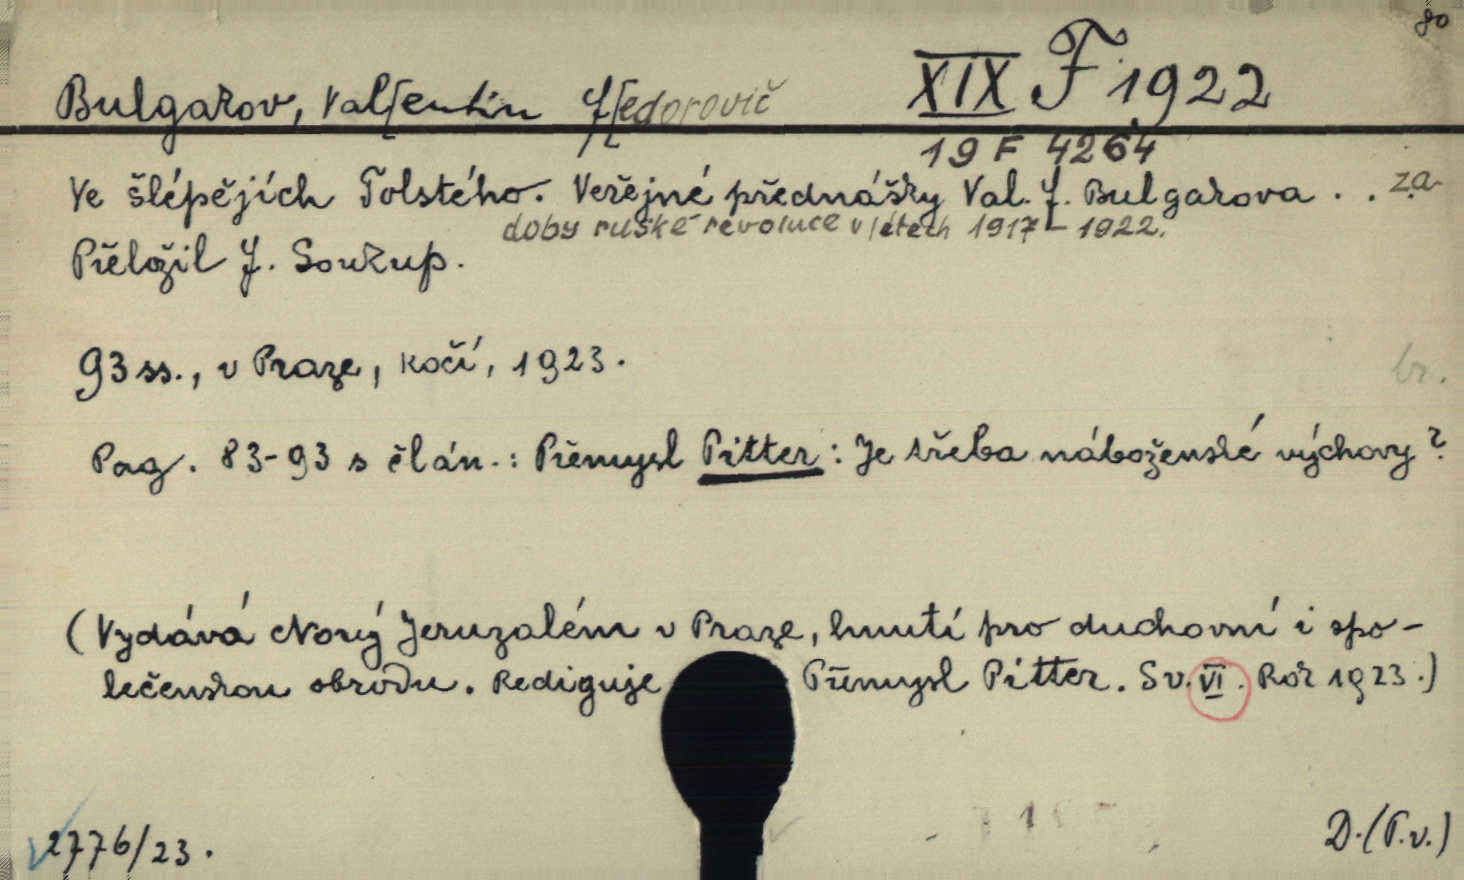 80
Bulgakov, Val[entin F[edorovič XIX F 1922
19 F 4264
Ve šlépějích Tolstého. Veřejné přednášky Val. F. Bulgakova . . za
doby ruské revoluce v létech 1917 - 1922.
Přeložil J. Soukup.
93 ss., v Praze, Kočí, 1923.
br.
Pag. 83-93 s člán.: Přemysl Pitter: Je třeba náboženské výchovy?
(Vydává Nový Jeruzalém v Praze, hnutí pro duchovní i spo-
lečenskou obrodu. Rediguje Přemysl Pitter. Sv. VI. Rok 1923.)
2776/23.
D.(T.v.)